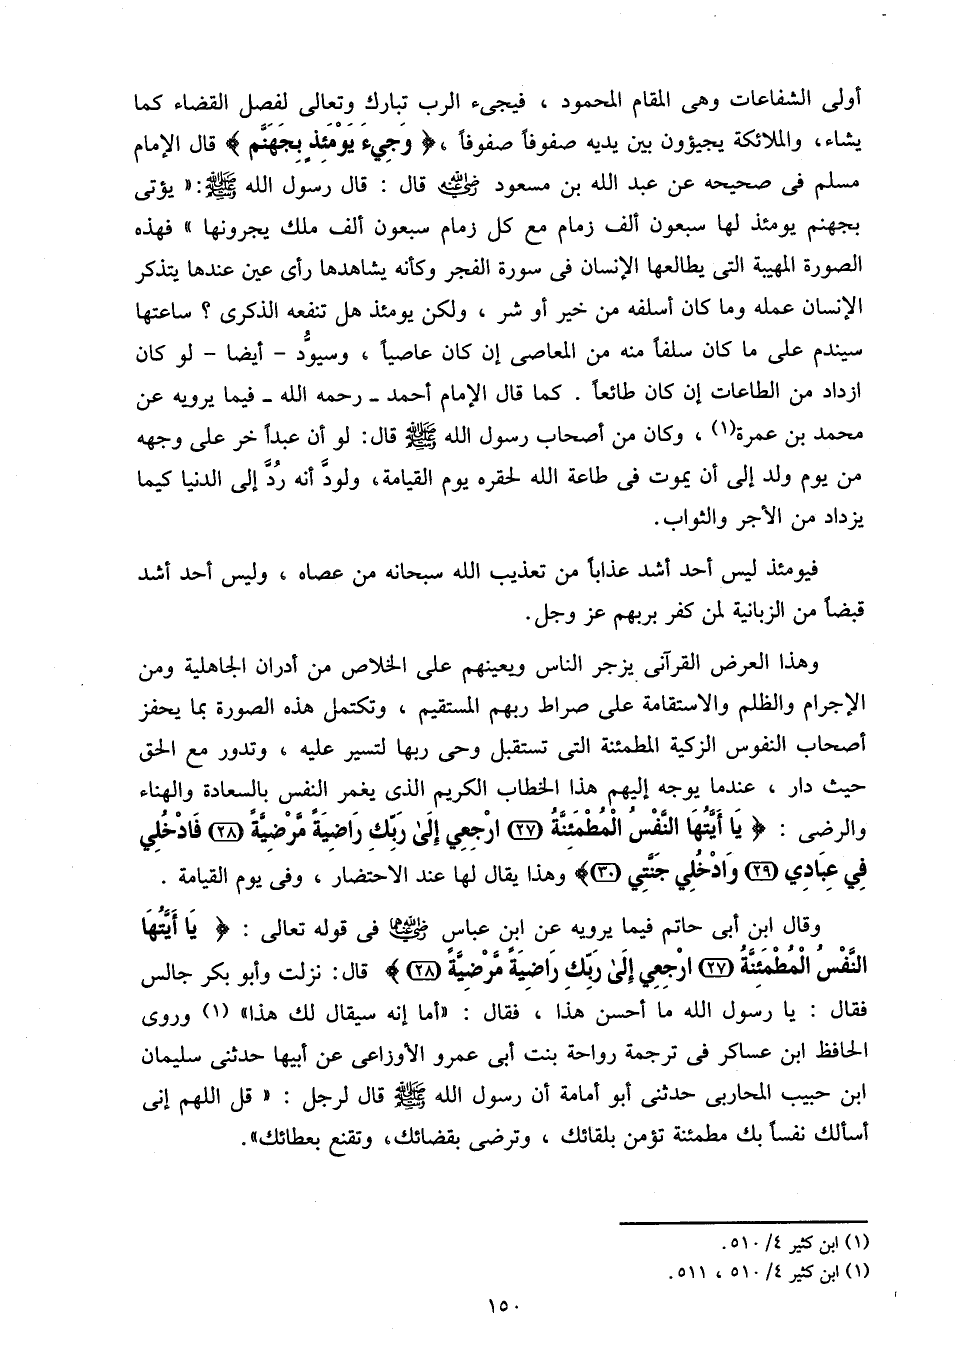 أولى الشفاعات وهى المقام المحمود ، فيجىء الرب تبارك وتعالى لفصل القضاء كما
يشاء، والملائكة يجيؤون بين يديه صفوفاً صفوفاً ،﴿ وَجِيءَ يَوْمَئِذٍ بِجَهَنَّمَ ﴾ قال الإمام
مسلم فى صحيحه عن عبد الله بن مسعود رضي الله عنه قال : قال رسول الله ﷺ:« يؤتى
بجهنم يومئذ لها سبعون ألف زمام مع كل زمام سبعون ألف ملك يجرونها » فهذه
الصورة المهيبة التى يطالعها الإنسان فى سورة الفجر وكأنه يشاهدها رأى عين عندها يتذكر
الإنسان عمله وما كان أسلفه من خير أو شر ، ولكن يومئذ هل تنفعه الذكرى ؟ ساعتها
سيندم على ما كان سلفاً منه من المعاصى إن كان عاصياً ، وسيودُّ - أيضا - لو كان
ازداد من الطاعات إن كان طائعاً . كما قال الإمام أحمد ـ رحمه الله ـ فيما يرويه عن
محمد بن عمرة(١) ، وكان من أصحاب رسول الله ﷺ قال: لو أن عبداً خر على وجهه
من يوم ولد إلى أن يموت فى طاعة الله لحقره يوم القيامة، ولودَّ أنه رُدَّ إلى الدنيا كيما
يزداد من الأجر والثواب.
فيومئذ ليس أحد أشد عذاباً من تعذيب الله سبحانه من عصاه ، وليس أحد أشد
قبضاً من الزبانية لمن كفر بربهم عز وجل.
وهذا العرض القرآنى يزجر الناس ويعينهم على الخلاص من أدران الجاهلية ومن
الإجرام والظلم والاستقامة على صراط ربهم المستقيم ، وتكتمل هذه الصورة بما يحفز
أصحاب النفوس الزكية المطمئنة التى تستقبل وحى ربها لتسير عليه ، وتدور مع الحق
حيث دار ، عندما يوجه إليهم هذا الخطاب الكريم الذى يغمر النفس بالسعادة والهناء
والرضى : ﴿ يَا أَيَّتُهَا النَّفْسُ الْمُطْمَئِنَّةُ (٢٧) ارْجِعِي إِلَىٰ رَبِّكِ رَاضِيَةً مَّرْضِيَّةً (٢٨) فَادْخُلِي
فِي عِبَادِي (٢٩) وَادْخُلِي جَنَّتِي (٣٠)﴾ وهذا يقال لها عند الاحتضار ، وفى يوم القيامة .
وقال ابن أبى حاتم فيما يرويه عن ابن عباس رضي الله عنهما فى قوله تعالى : ﴿ يَا أَيَّتُهَا
النَّفْسُ الْمُطْمَئِنَّةُ (٢٧) ارْجِعِي إِلَىٰ رَبِّكِ رَاضِيَةً مَّرْضِيَّةً (٢٨) ﴾ قال: نزلت وأبو بكر جالس
فقال : يا رسول الله ما أحسن هذا ، فقال : «أما إنه سيقال لك هذا» (١) وروى
الحافظ ابن عساكر فى ترجمة رواحة بنت أبى عمرو الأوزاعى عن أبيها حدثنى سليمان
ابن حبيب المحاربى حدثنى أبو أمامة أن رسول الله ﷺ قال لرجل : « قل اللهم إنى
أسألك نفساً بك مطمئنة تؤمن بلقائك ، وترضى بقضائك، وتقنع بعطائك».
(١) ابن كثير ٤/ ٥١٠.
(١) ابن كثير ٤/ ٥١٠ ، ٥١١.
١٥٠